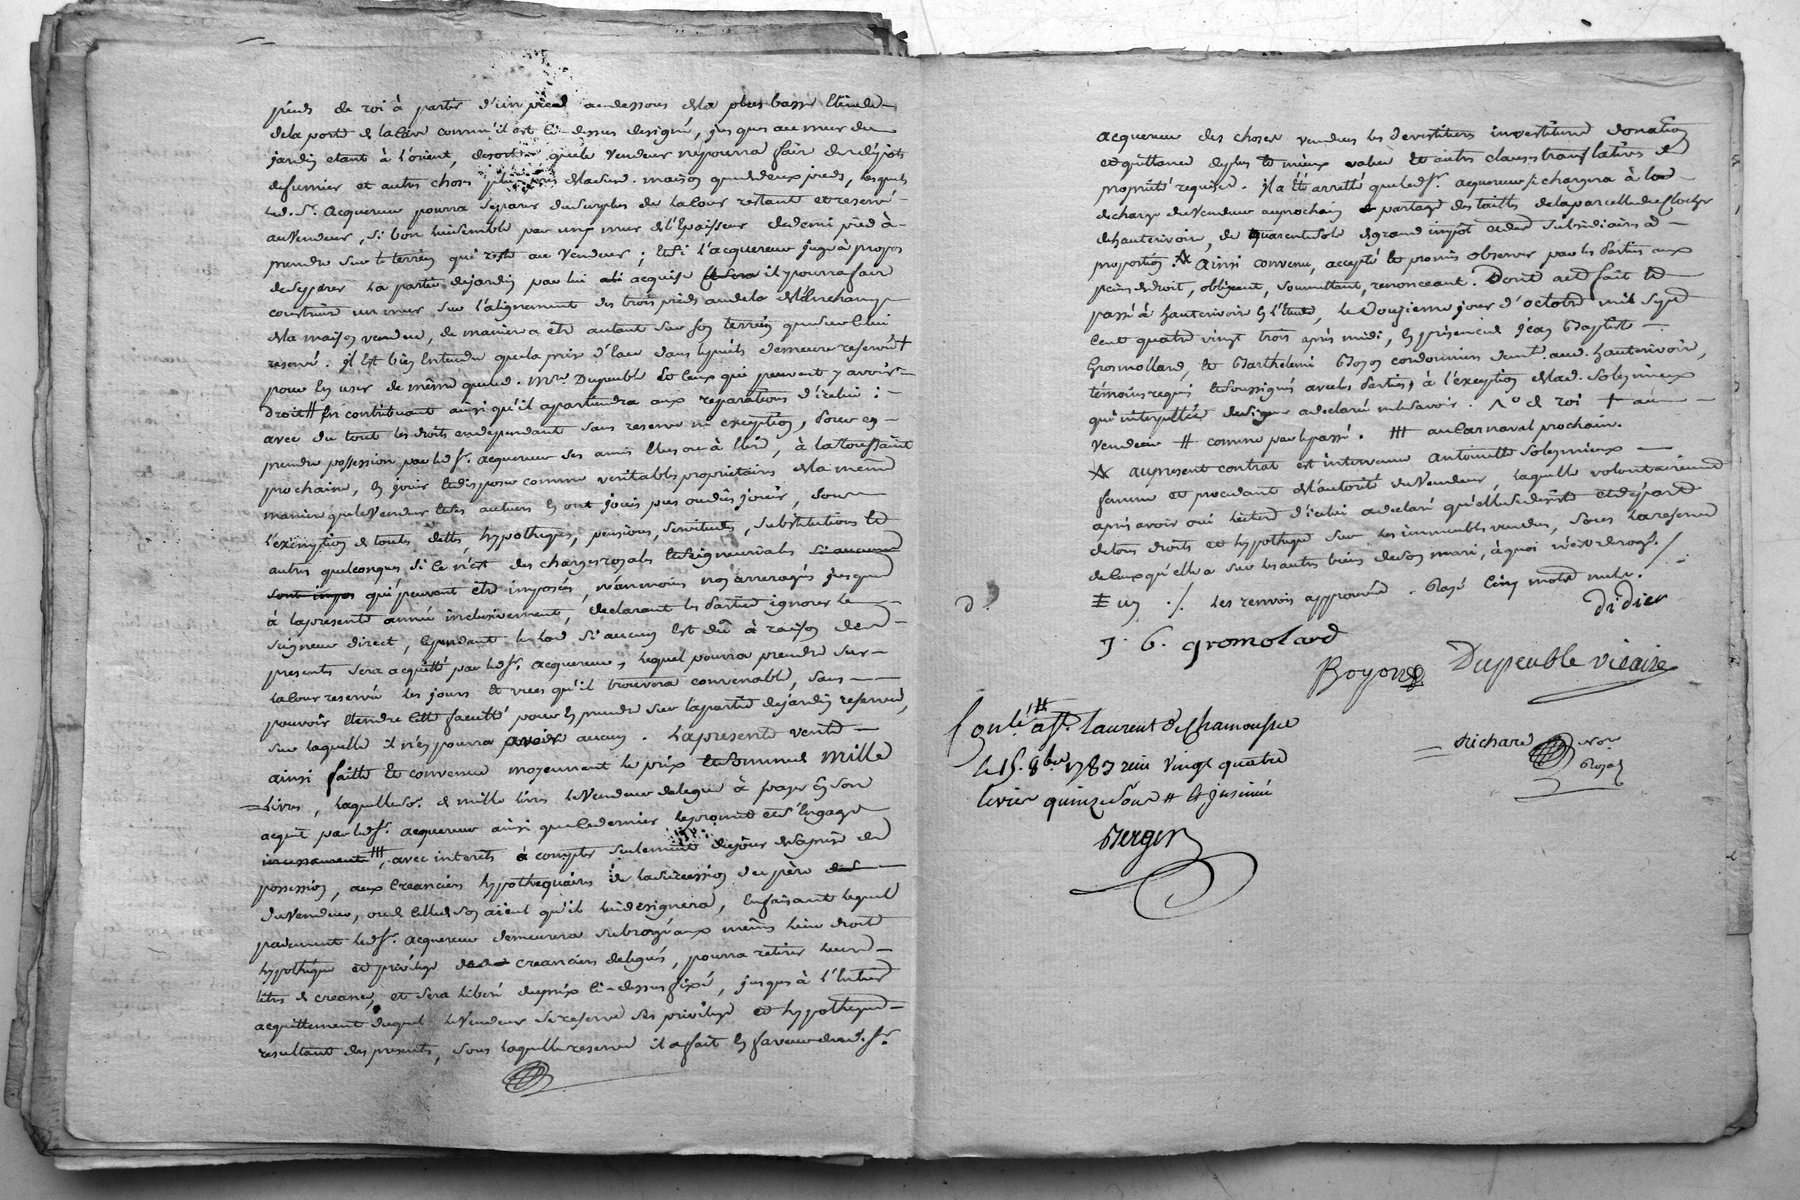 pieds de roi à partir d'un pied audessous de la plus basse
de la porte de la cave comm'il est ci-dessus designé, jusques au mur du
jardin etant à l'orient, desorte que le vendeur ne pourra faire de depots
de fumier et autres choses plus près de lad. maison que de deux pieds, lesquels
led. Sr. acquereur pourra separer du surplus de la cour restant et reservé
au vendeur, si bon lui semble par un mur de l'epaisseur de demi pied à
prendre sur le terrein qui reste au vendeur; et si l'acquereur juge à propos
de separer la partie de jardin par lui acquise il y pourra faire
construire un mur sur l'alignement des trois pieds audela
de la maison vendue, de maniere a etre autant sur son terrein que sur celui
reservé. il est bien entendu que la prise d'eau dans le puits demeure reservée †
pour en user de même que led. Mre. Dupeuble et ceux qui peuvent y avoir
droit ++ en contribuant ainsi qu'il apartiendra aux reparations d'icelui;
avec du tout les droits en dependant sans reserve ni exception, pour en
prendre possession par led. Sr. acquereur ses amis elus ou à elire, à la toussaint
prochaine, en jouir et disposer comme veritable proprietaire de la même
maniere que le vendeur et ses auteurs en ont joui pu ou du jouir, sous
l'exemption de toutes dettes hypotheques, pensions, servitudes, substitutions et
autres quelconques, si ce n'est des charges royales et seigneuriales si aucunes
sont impos qui peuvent etre imposés, néanmoins non arreragés jusques
à la presente année inclusivement, declarant les parties ignorer le
seigneur direct, cependant le lod si aucun est dû à raison des
presentes sera acquitté par led. Sr. acquereur, lequel pourra prendre sur
la cour reservée les jours et vues qu'il trouvera convenable, sans
pouvoir etendre cette faculté pour en prendre sur la partie de jardin reservée,
sur laquelle il n'en pourra avoir aucun. La presente vente
ainsi faitte et convenue moyennant le prix et somme de mille
livres, laquelle so. de mille livres le vendeur delegue à payer en son
acquit par led. Sr. acquereur ainsi que ce dernier le promet et s'engage
incessamment +++, avec interets à compter seulement du jour de la prise de
possession, aux creanciers hypothequaires de la succession du père
du vendeur, ou de celle de son aieul qu'il lui designera, en faisant lequel
payement led. Sr. acquereur demeurera subrogé aux mêmes lieu droit
hypotheque et privilege des creanciers delegués, pourra retirer leurs
titres de creance, et sera liberé du prix ci-dessus fixé, jusques à l'entier
acquittement duquel le vendeur se reserve ses privilege et hypotheque
resultant des presentes, sous laquelle reserve il a fait en faveur dud. Sr.
acquereur des choses vendues les devestitures investiture donation
et quittance de plus et mieux value et autres clauses translatives de
proprieté requises. il a été arretté que led. Sr. acquereur se chargera à la
decharge du vendeur au prochain partage des tailles de la parcelle du clocher
d'hauterivoire, de quarente sols de grand impot et des subsidiaires à
proportion. Ainsi convenu, accepté et promis observer par les parties aux
peines de droit, obligeant, soumettant, renonceant. Dont acte fait et
passé à hauterivoire en l'etude, le Douzieme jour d'octobre mil sept
cent quatre vingt trois après midi, en présence de jean Baptiste
Grosmollard, et Barthelemi Boyon cordonniers demt. aud. hauterivoire,
témoins requis et soussignés avec les parties, à l'exception de lad. Solesmieux
qui interpellée de signer a declaré ne le savoir. No de roi † au
vendeur ++ comme par le passé. +++ au Carnaval prochain.
au present contrat est intervenue antoinette Solesmieux
femme et procedant de l'autorité du vendeur, laquelle volontairement
après avoir oui lecture d'icelui a declaré qu'elle se desiste et départ
de tous droits et hypotheque sur les immeubles vendus, sous la reserve
de ceux qu'elle a sur les autres biens de son mari, à quoi n'est derogé./.
un ./. Les renvois approuvés. Rayé cinq mots nuls./.
didier
J. B. gromolard
Boyon Dupeuble vicaire
Contlé. a St. Laurent de Chamousset
le 15. 8bre 1783 reçu vingt quatre
livres quinze sous
Berger
Richard Nore
Royal